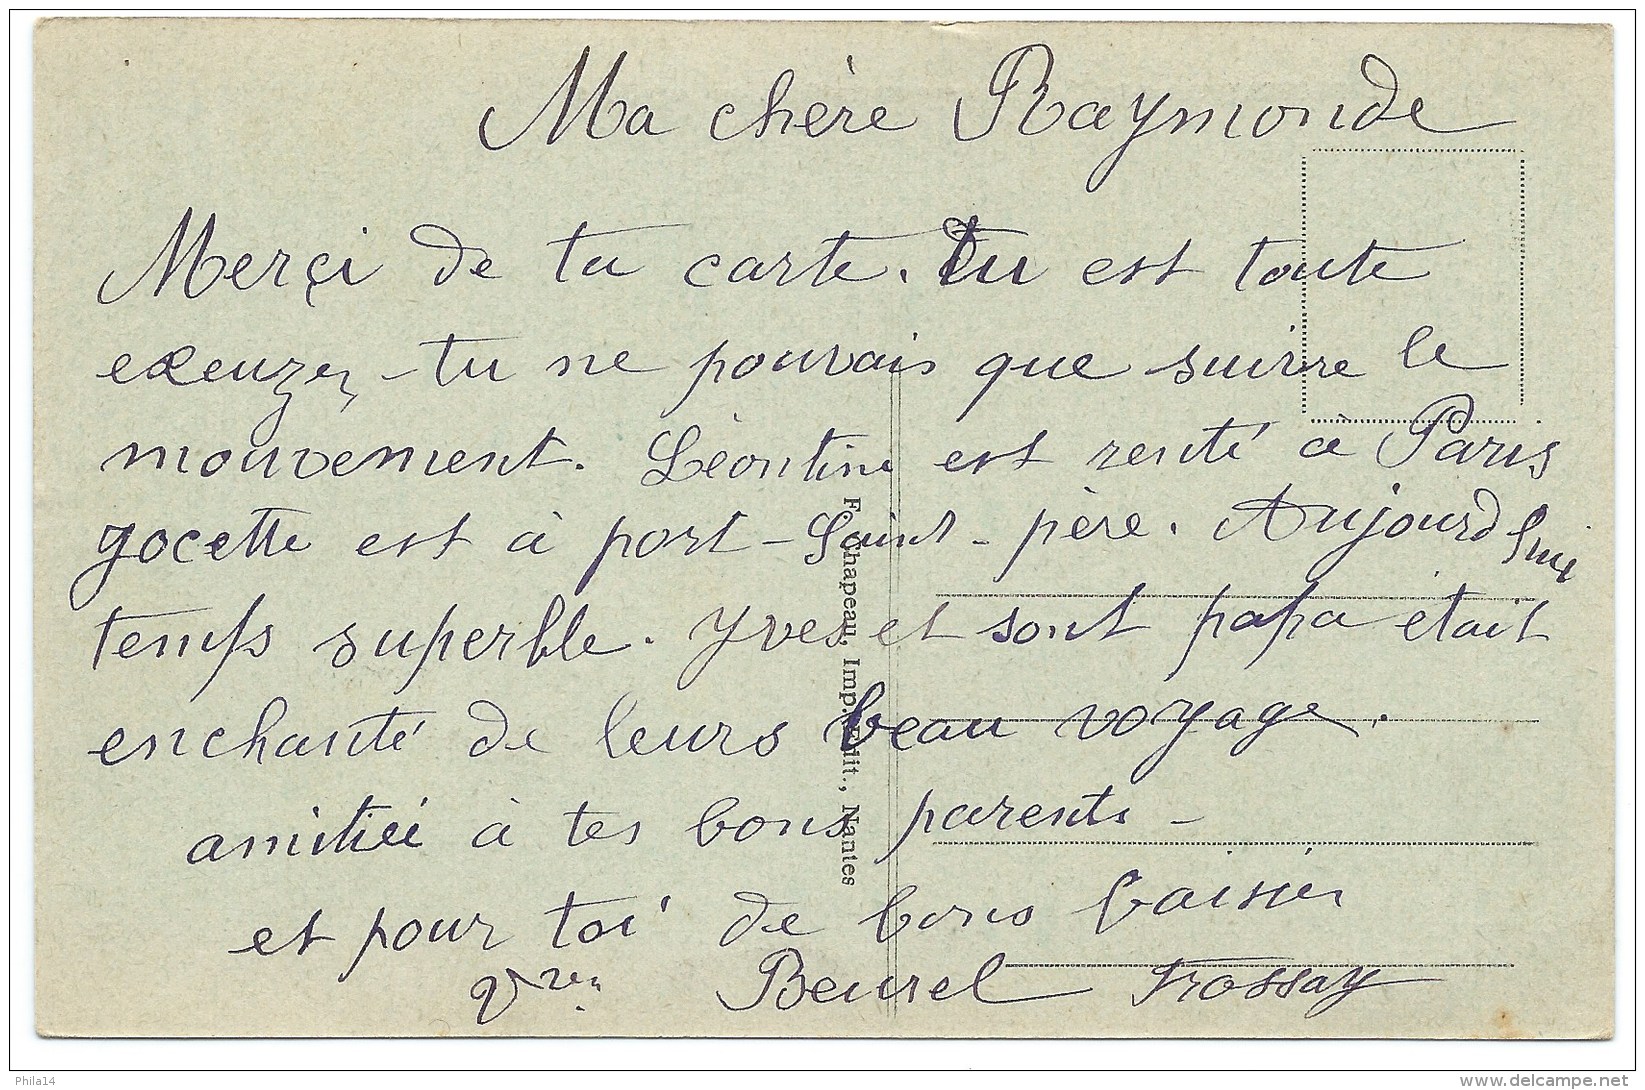 Ma chère Raymonde
Merçi de ta carte. Tu est toute
exeuzer tu ne pouvais que suivre le
mouvement. Léontine est renté à Paris
gocette est à port-Saint-père. Aujourd hui
temps superble. Yves et sont papa était
enchanté de leurs beau voyage.
amitiéi à tes bons parents -
et pour toi de bons baisier
Vve Beurel Frossay
F. Chapeau, Imp.-Edit., Nantes
Phila14
www.delcampe.net